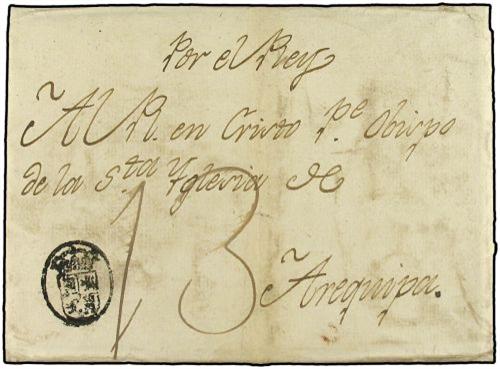 Por el Rey
Al R. en Cristo P.e Obispo
de la S.ta Yglesia de
13
Arequipa.